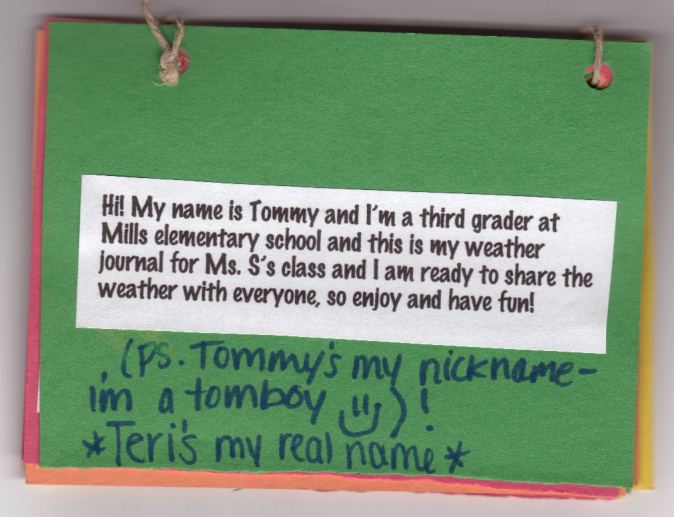 Hi! My name is Tommy and I'm a third grader at
Mills elementary school and this is my weather
journal for Ms. S's class and I am ready to share the
weather with everyone, so enjoy and have fun!
(PS. Tommy's my nickname-
im a tomboy )!
*Teri's my real name*